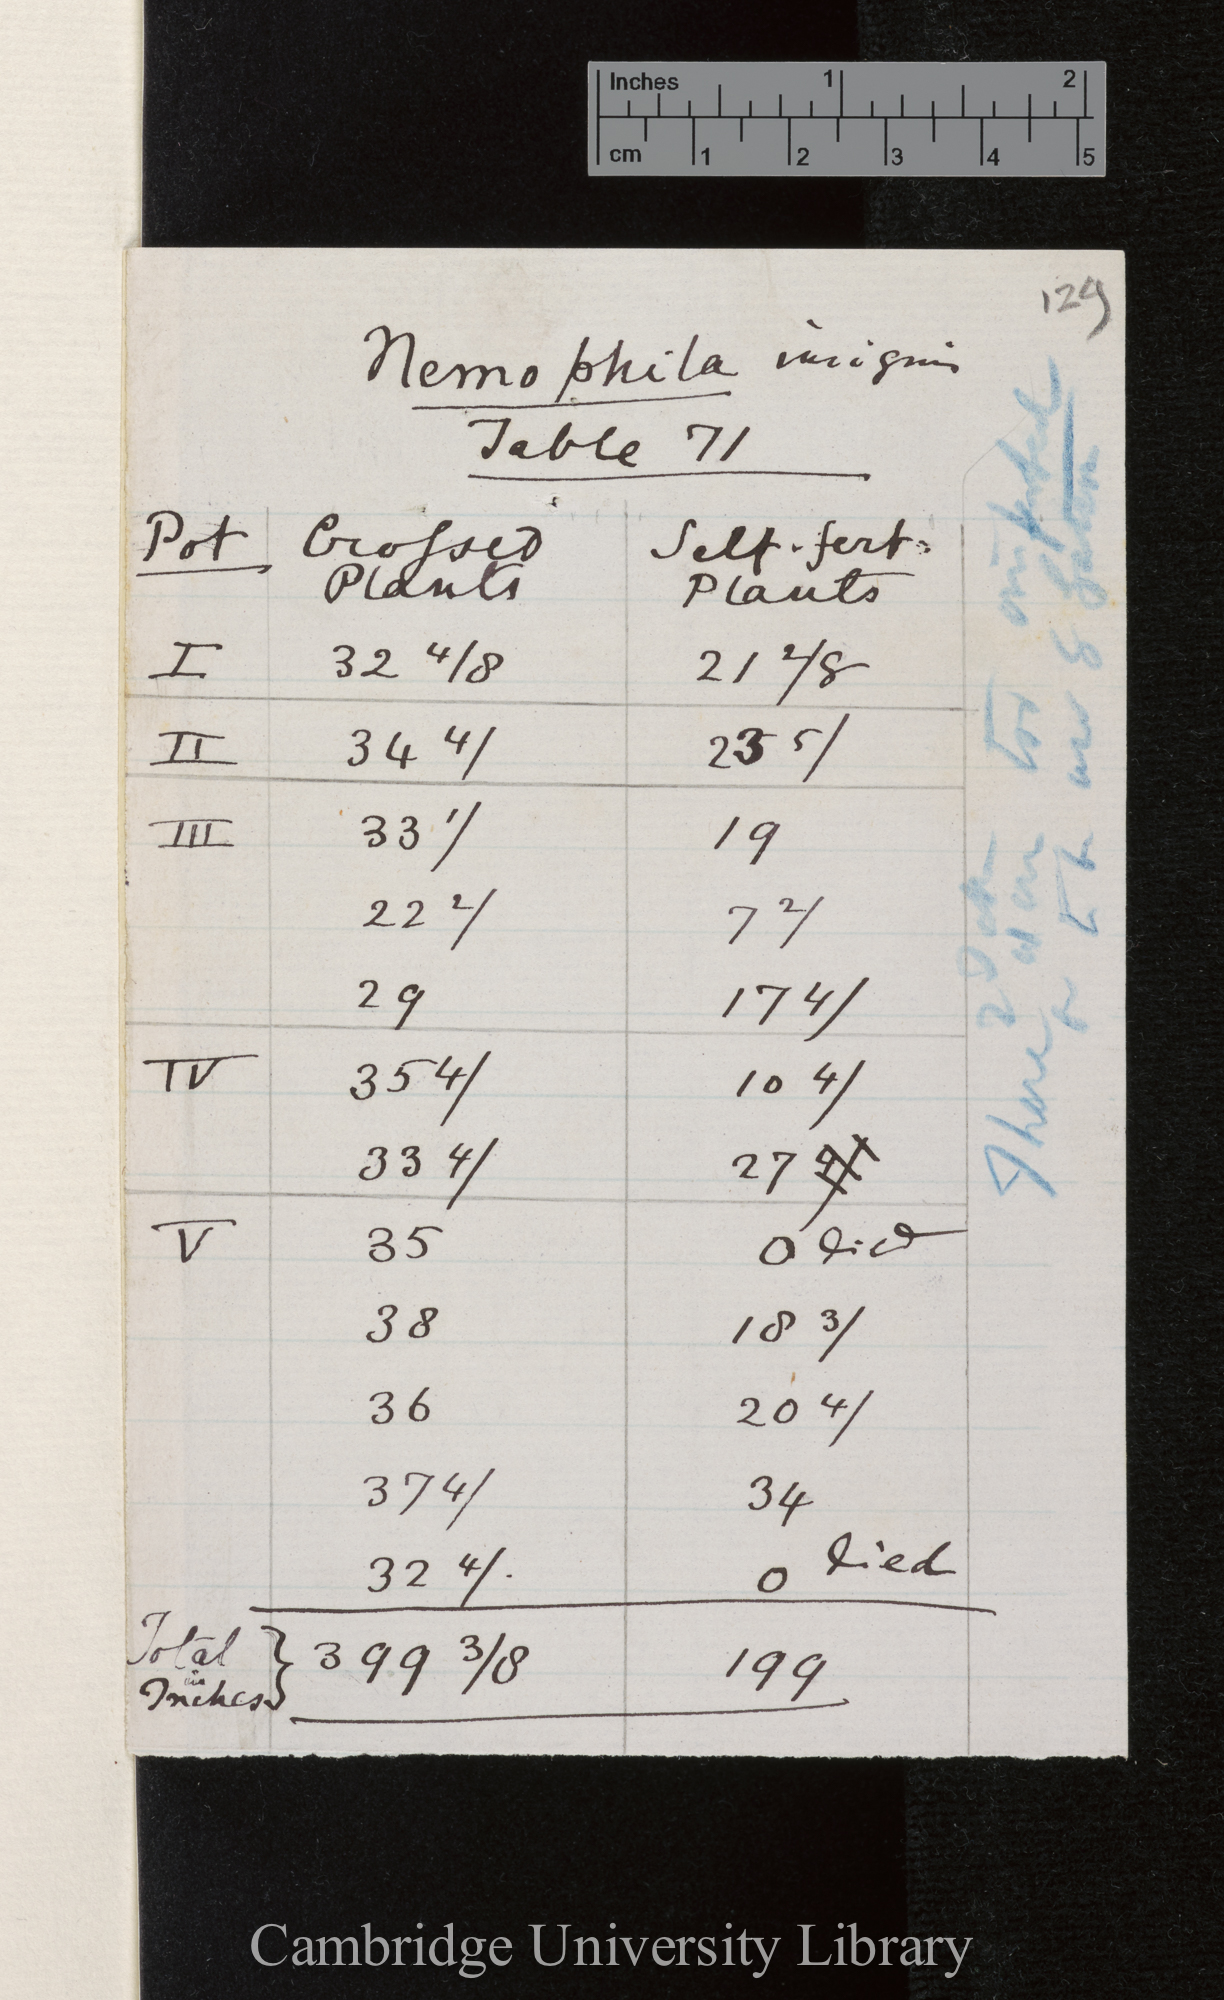 Inches 1 2
cm 1 2 3 4 5
129
Nemophila insignis
Table 71
Pot Crossed Self-fert.
Plants Plants
I 32 4/8 21 2/8
II 34 4/ 23 5/
III 33 1/ 19
22 2/ 7 2/
29 17 4/
IV 35 4/ 10 4/
33 4/ 27
V 35 0 died
38 18 3/
36 20 4/
37 4/ 34
32 4/. 0 died
Total 399 3/8 199
in
Inches
There
too omitted
Cambridge University Library